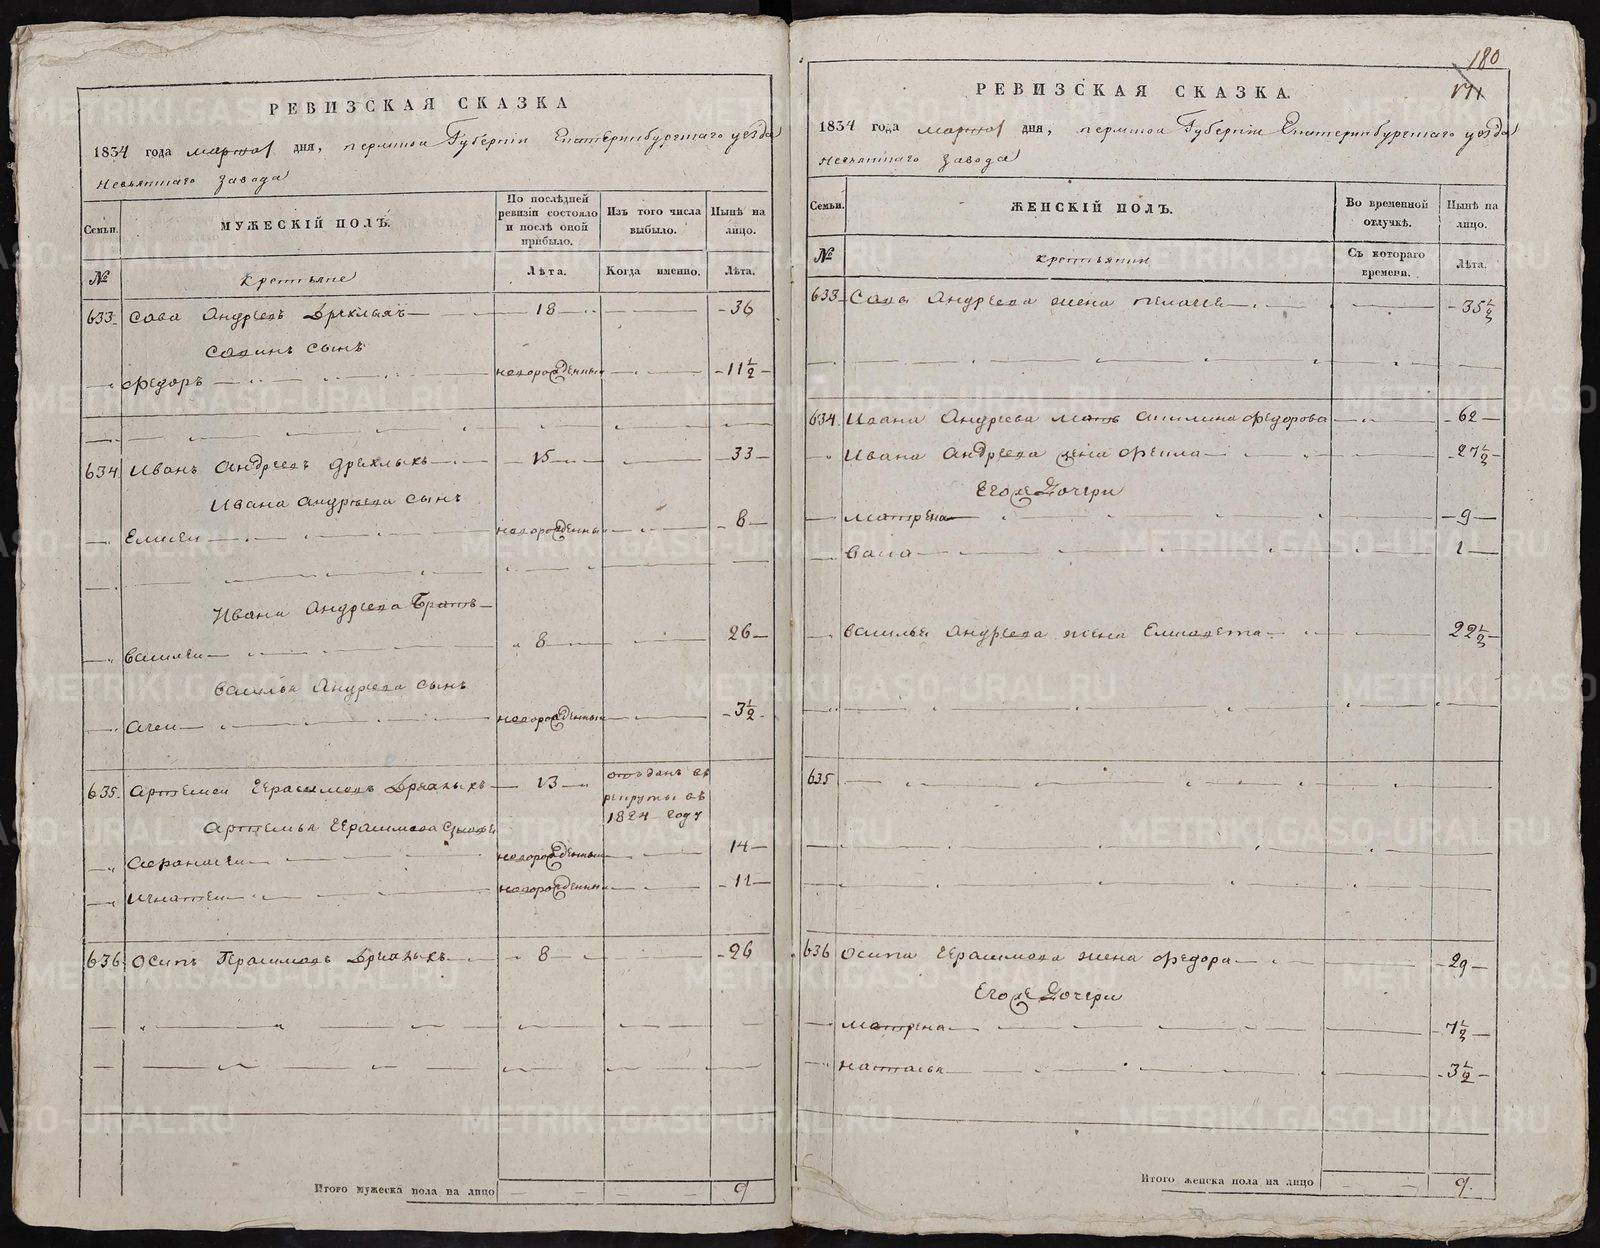 РЕВИЗСКАЯ СКАЗКА
1834 года марта 1 дня, пермской Губернiи Екатеринбургскаго уезда
Невьянскаго Завода
Семьи.
МУЖЕСКIЙ ПОЛЪ.
По послѣдней ревизiи состояло и послѣ оной прибыло.
Изъ того числа выбыло.
Нынѣ на лицо.
№
крестьяне
Лѣта.
Когда именно.
Лѣта.
633. Сава Андреевъ Дрехлыхъ 18 36
Савинъ сынъ
Федоръ новорожденный 11½
634 Иванъ Андреевъ Дрехлыхъ 15 33
Ивана Андреева сынъ
Елисеи новорожденный 8
Ивана Андреева Братъ
Василеи 8 26
Василья Андреева сынъ
новорожденный 3½
635. Артемеи Герасимовъ Дрехлыхъ 13 отъданъ въ рекруты въ 1824 году
Артемья Герасимова сыновья
Афанасеи новорожденный 14
Игнатеи новорожденный 11
636 Осипъ Герасимовъ Дрехлыхъ 8 26
Итого мужеска пола на лицо 9
180
171
РЕВИЗСКАЯ СКАЗКА.
1834 года марта 1 дня, пермской Губернiи Екатеринбургскаго уезда
Невьянскаго Завода
Семьи.
ЖЕНСКIЙ ПОЛЪ.
Во временной отлучкѣ.
Нынѣ на лицо.
№
крестьянки
Съ котораго времени.
Лѣта.
633 Савы Андреева жена Пелагея 35½
634. Ивана Андреева мать Акилина Федорова 62
Ивана Андреева жена Фекла 27½
Его же Дочери
Матрена 9
Васа 1
Василья Андреева жена Елисавета 22½
635
636 Осипа Герасимова жена Федора 29
Его же Дочери
Матрена 7½
Наталья 3½
Итого женска пола на лицо 9.
METRIKI.GASO-URAL.RU